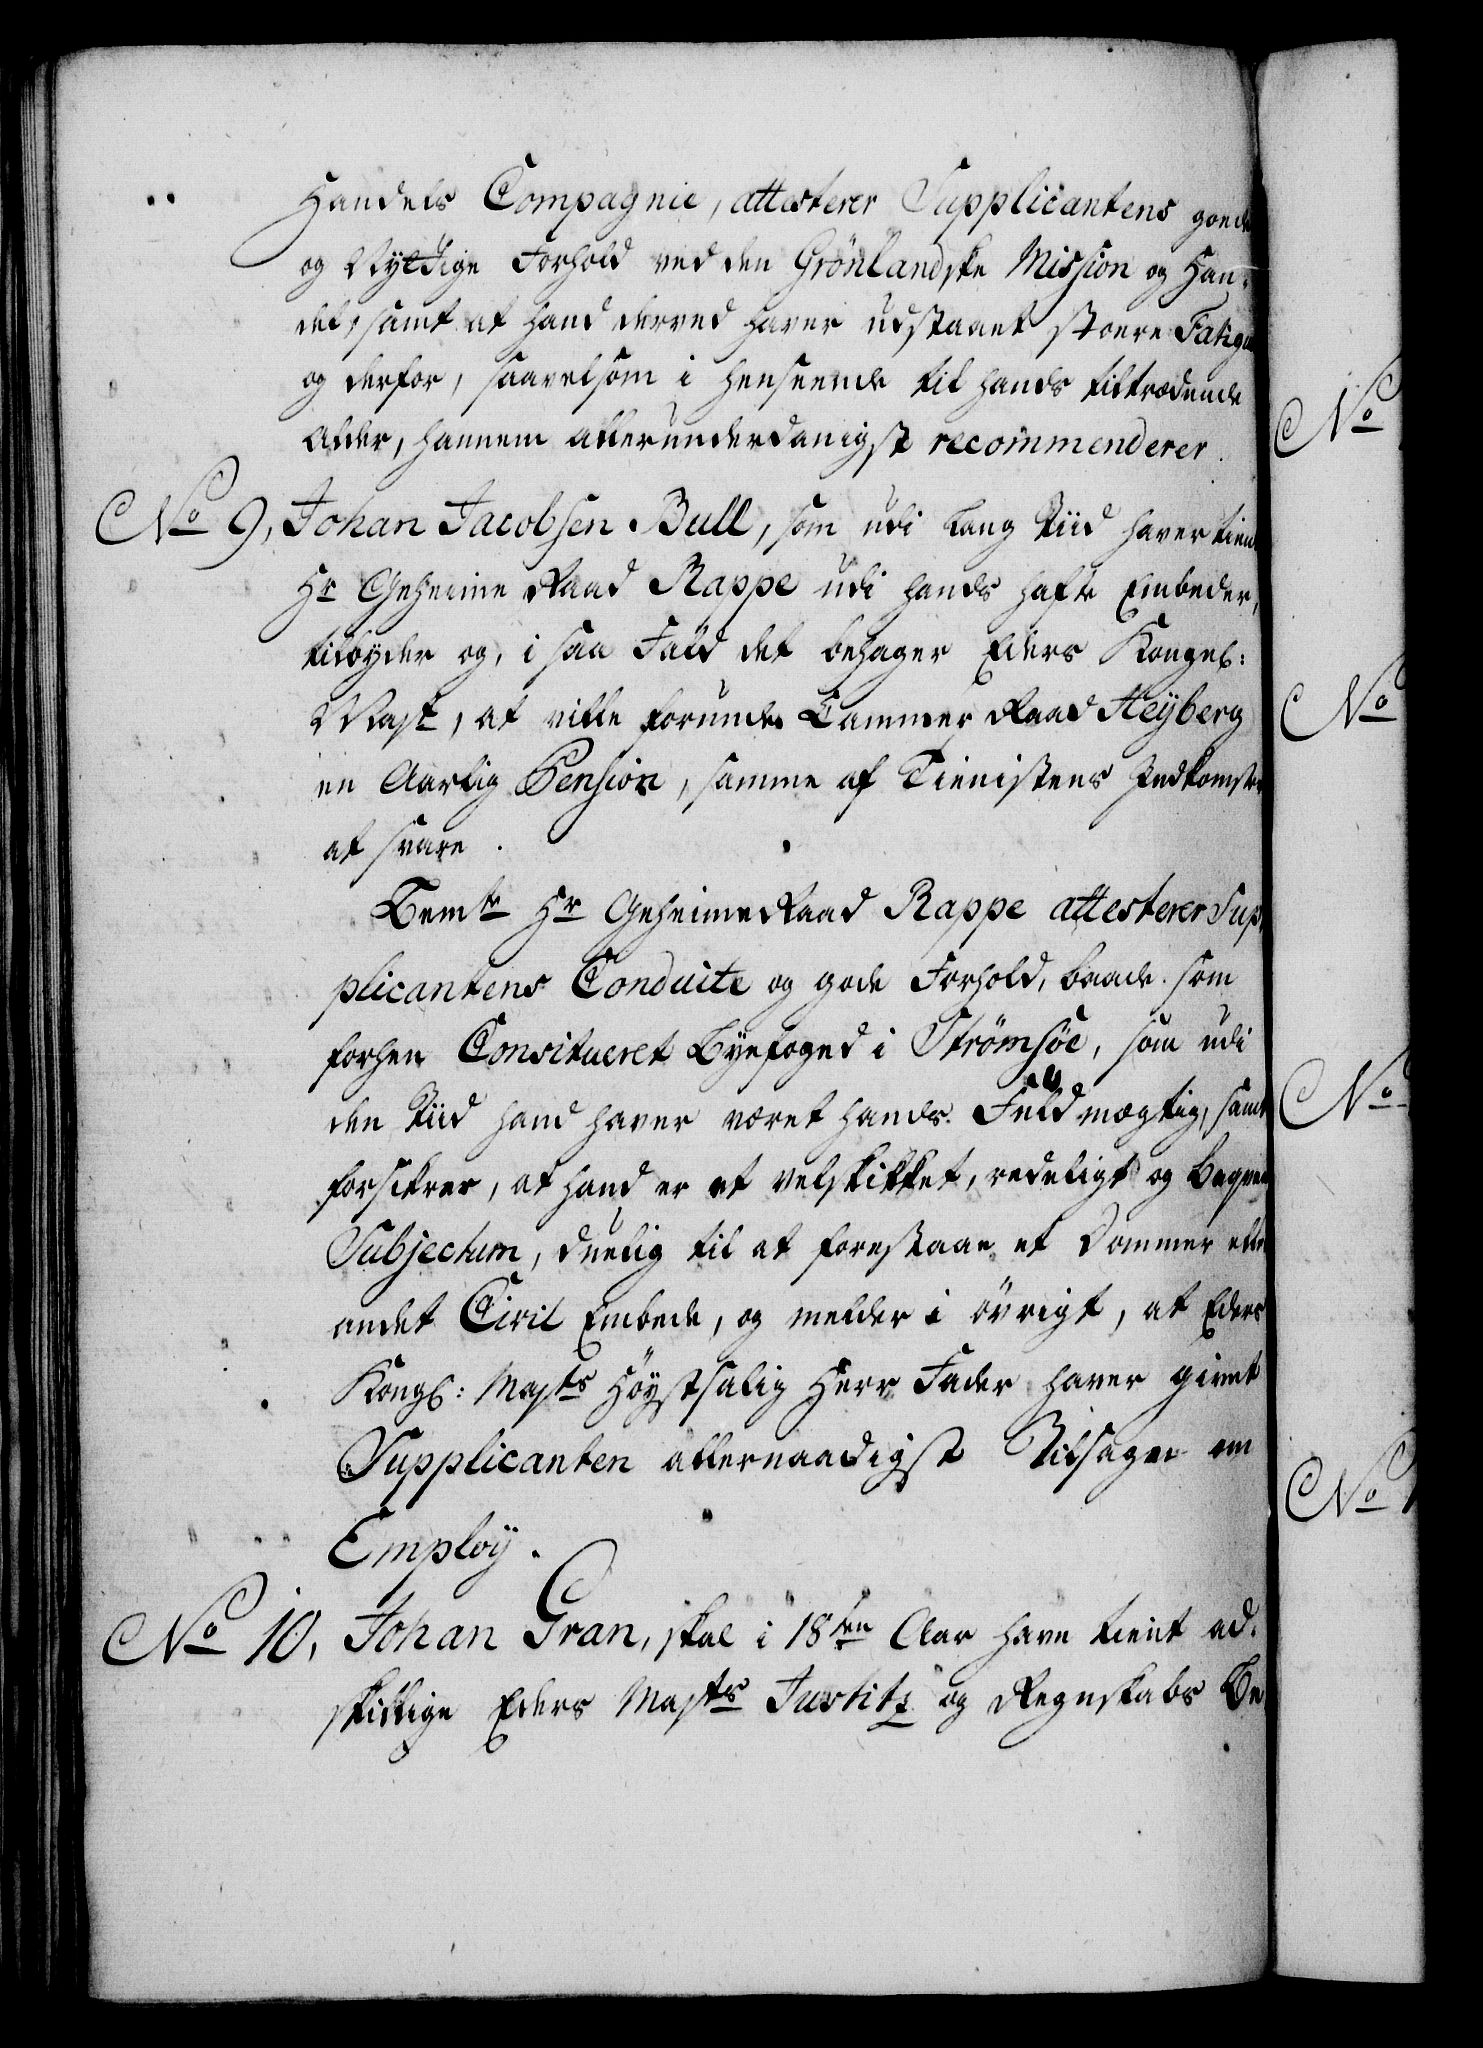 Handels Compagnie, attesterer Supplicantens goede
og Nyttige Forhold ved den Grönlandske Mission og Han-
del, samt at hand derved haver udstaaet stoere Fatigue
og derfor, saavelsom i henseende til hands tiltrædende
Alder, hannem allerunderdanigst recommenderer.
No 9, Johan Jacobsen Bull, som udi lang Tiid haver tient
Hr Geheime Raad Rappe udi hands hafte Embeder,
tilbyder og, i saa Fald det behager Eders Kongel:
Mayt, at ville forunde Cammer Raad Heÿberg
en Aarlig Pension, samme af Tienistens Indkomster
at svare.
Bemte Hr Geheime Raad Rappe attesterer Sup-
plicantens Conduite og gode Forhold, baade som
forhen Constitueret Byefoged i Strømsöe, som udi
den Tiid hand haver været hands Fuldmægtig, samt
forsikrer, at hand er et velskikket, redeligt og beqvem
Subjectum, duelig til at forestaae et Dommer eller
andet Civil Embede, og melder i övrigt, at Eders
Kongl: Mayts Höystsalig Herr Fader haver givet
Supplicanten allernaadigst Tilsagn om
Employ.
No 10, Johan Gran, skal i 18ten Aar have tient ad-
skillige Eders Mayts Justitz og Regnskabs Be
No
No
No
No